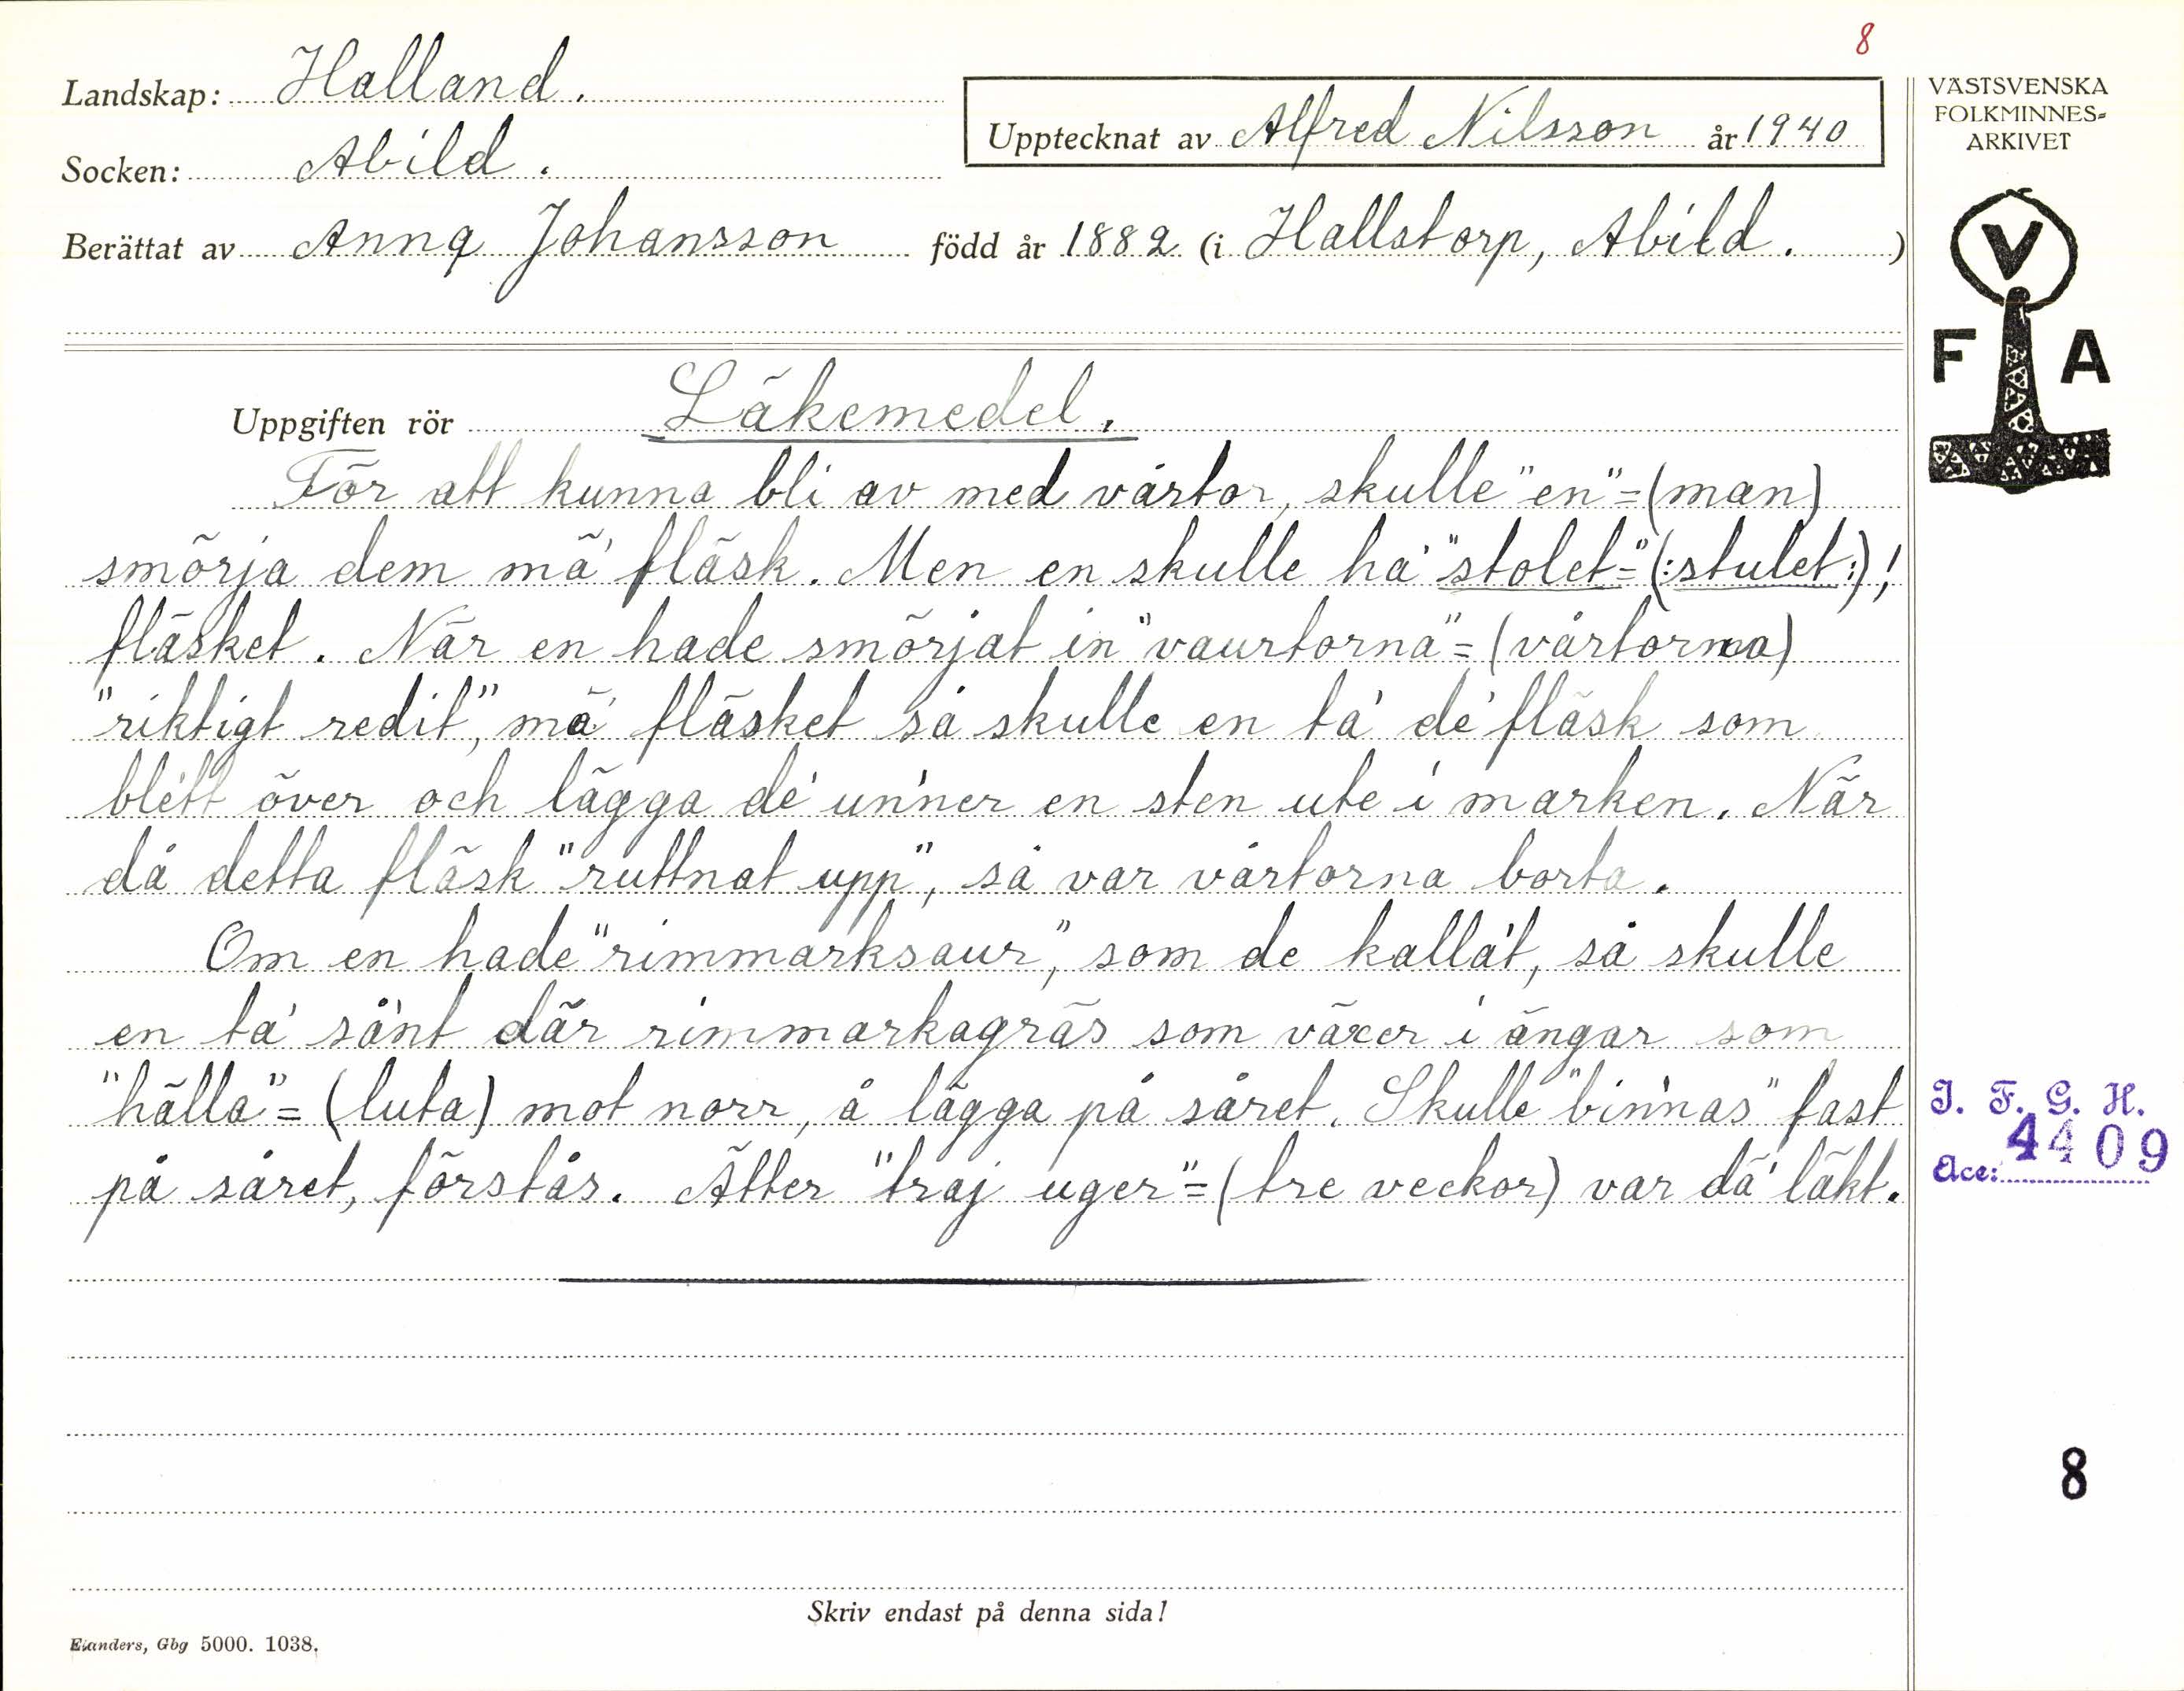 8
Landskap: Halland.
Socken: Abild.
Upptecknat av Alfred Nilsson år 1940
Berättat av Anna Johansson född år 1882 (i Hallstorp, Abild. )
Uppgiften rör Läkemedel.
För att kunna bli av med vårtor, skulle "en"=(man)
smörja dem mä' fläsk. Men en skulle ha' "stolet"=(:stulet:)!
fläsket. När en hade smörjat in "vaurtorna"=(vårtorna)
"riktigt redit", mä' fläsket så skulle en ta' de' fläsk som
blett över och lägga de' un'ner en sten ute i marken. När
då detta fläsk "ruttnat upp", så var vårtorna borta.
Om en hade "rimmarksaur", som de kalla't, så skulle
en ta' så'nt där rimmarkagräs som växer i ängar som
"hälla"=(luta) mot norr, å lägga på såret. Skulle "bin'nas" fast
på såret, förstås. Ätter "traj uger"=(tre veckor) var dä' läkt.
Skriv endast på denna sida!
Elanders, Gbg 5000. 1038.
VÄSTSVENSKA
FOLKMINNES=
ARKIVET
V
F A
I. F. G. H.
Acc: 4409
8